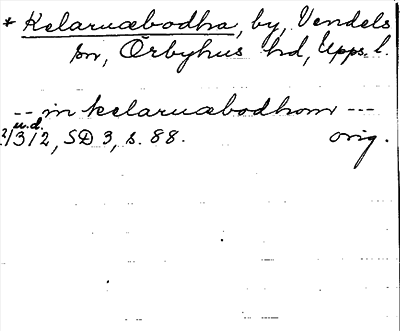 * Kelaruæbodha, by, Vendels
sn, Örbyhus hd, Upps. l.
-- in kelaruæbodhom ---
u.d.
2/1312, SD 3, s. 88. orig.